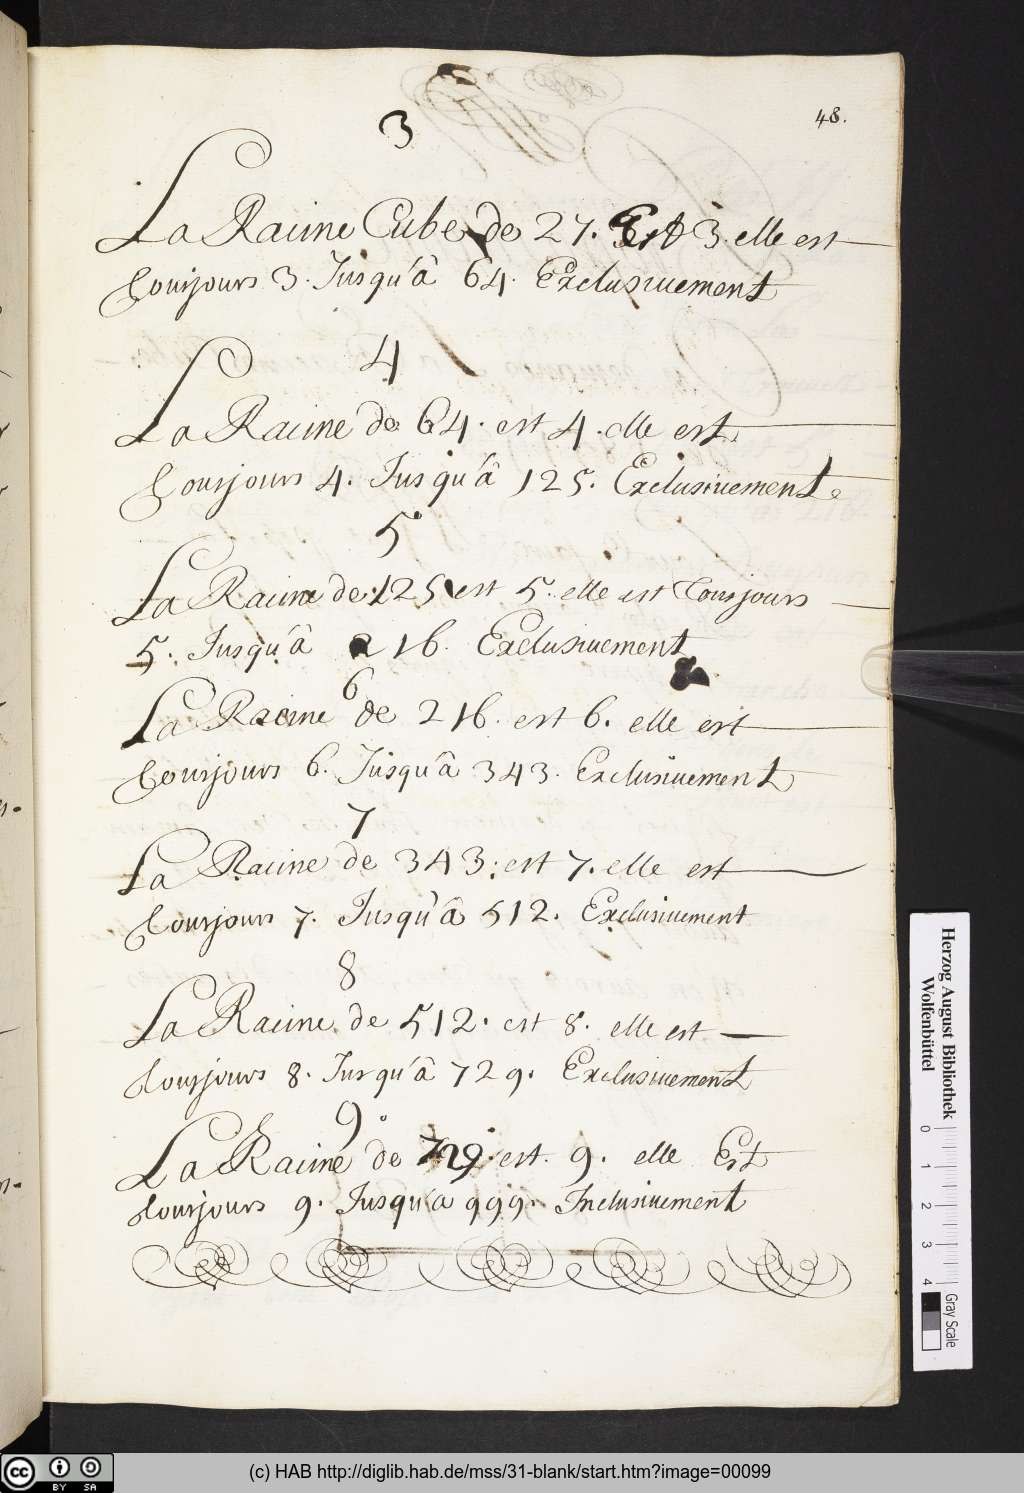 48.
3
La Racine Cube de 27. Est 3. elle est
tousjours 3. Jusqu'à 64. Exclusiuement
4
La Racine de 64. est 4. elle est
tousjours 4. Jusqu'à 125. Exclusiuement
5
La Racine de 125 est 5. elle est tousjours
5. Jusqu'à 216. Exclusiuement
6
La Racine de 216. est 6. elle est
tousjours 6. Jusqu'à 343. Exclusiuement
7
La Racine de 343. est 7. elle est
tousjours 7. Jusqu'à 512. Exclusiuement
8
La Racine de 512. est 8. elle est
tousjours 8. Jusqu'à 729. Exclusiuement
9
La Racine de 729. est. 9. elle Est
tousjours 9. Jusqu'a 999. Inclusiuement
Herzog August Bibliothek
Wolfenbüttel
0 1 2 3 4
Gray Scale
cc BY SA
(c) HAB http://diglib.hab.de/mss/31-blank/start.htm?image=00099